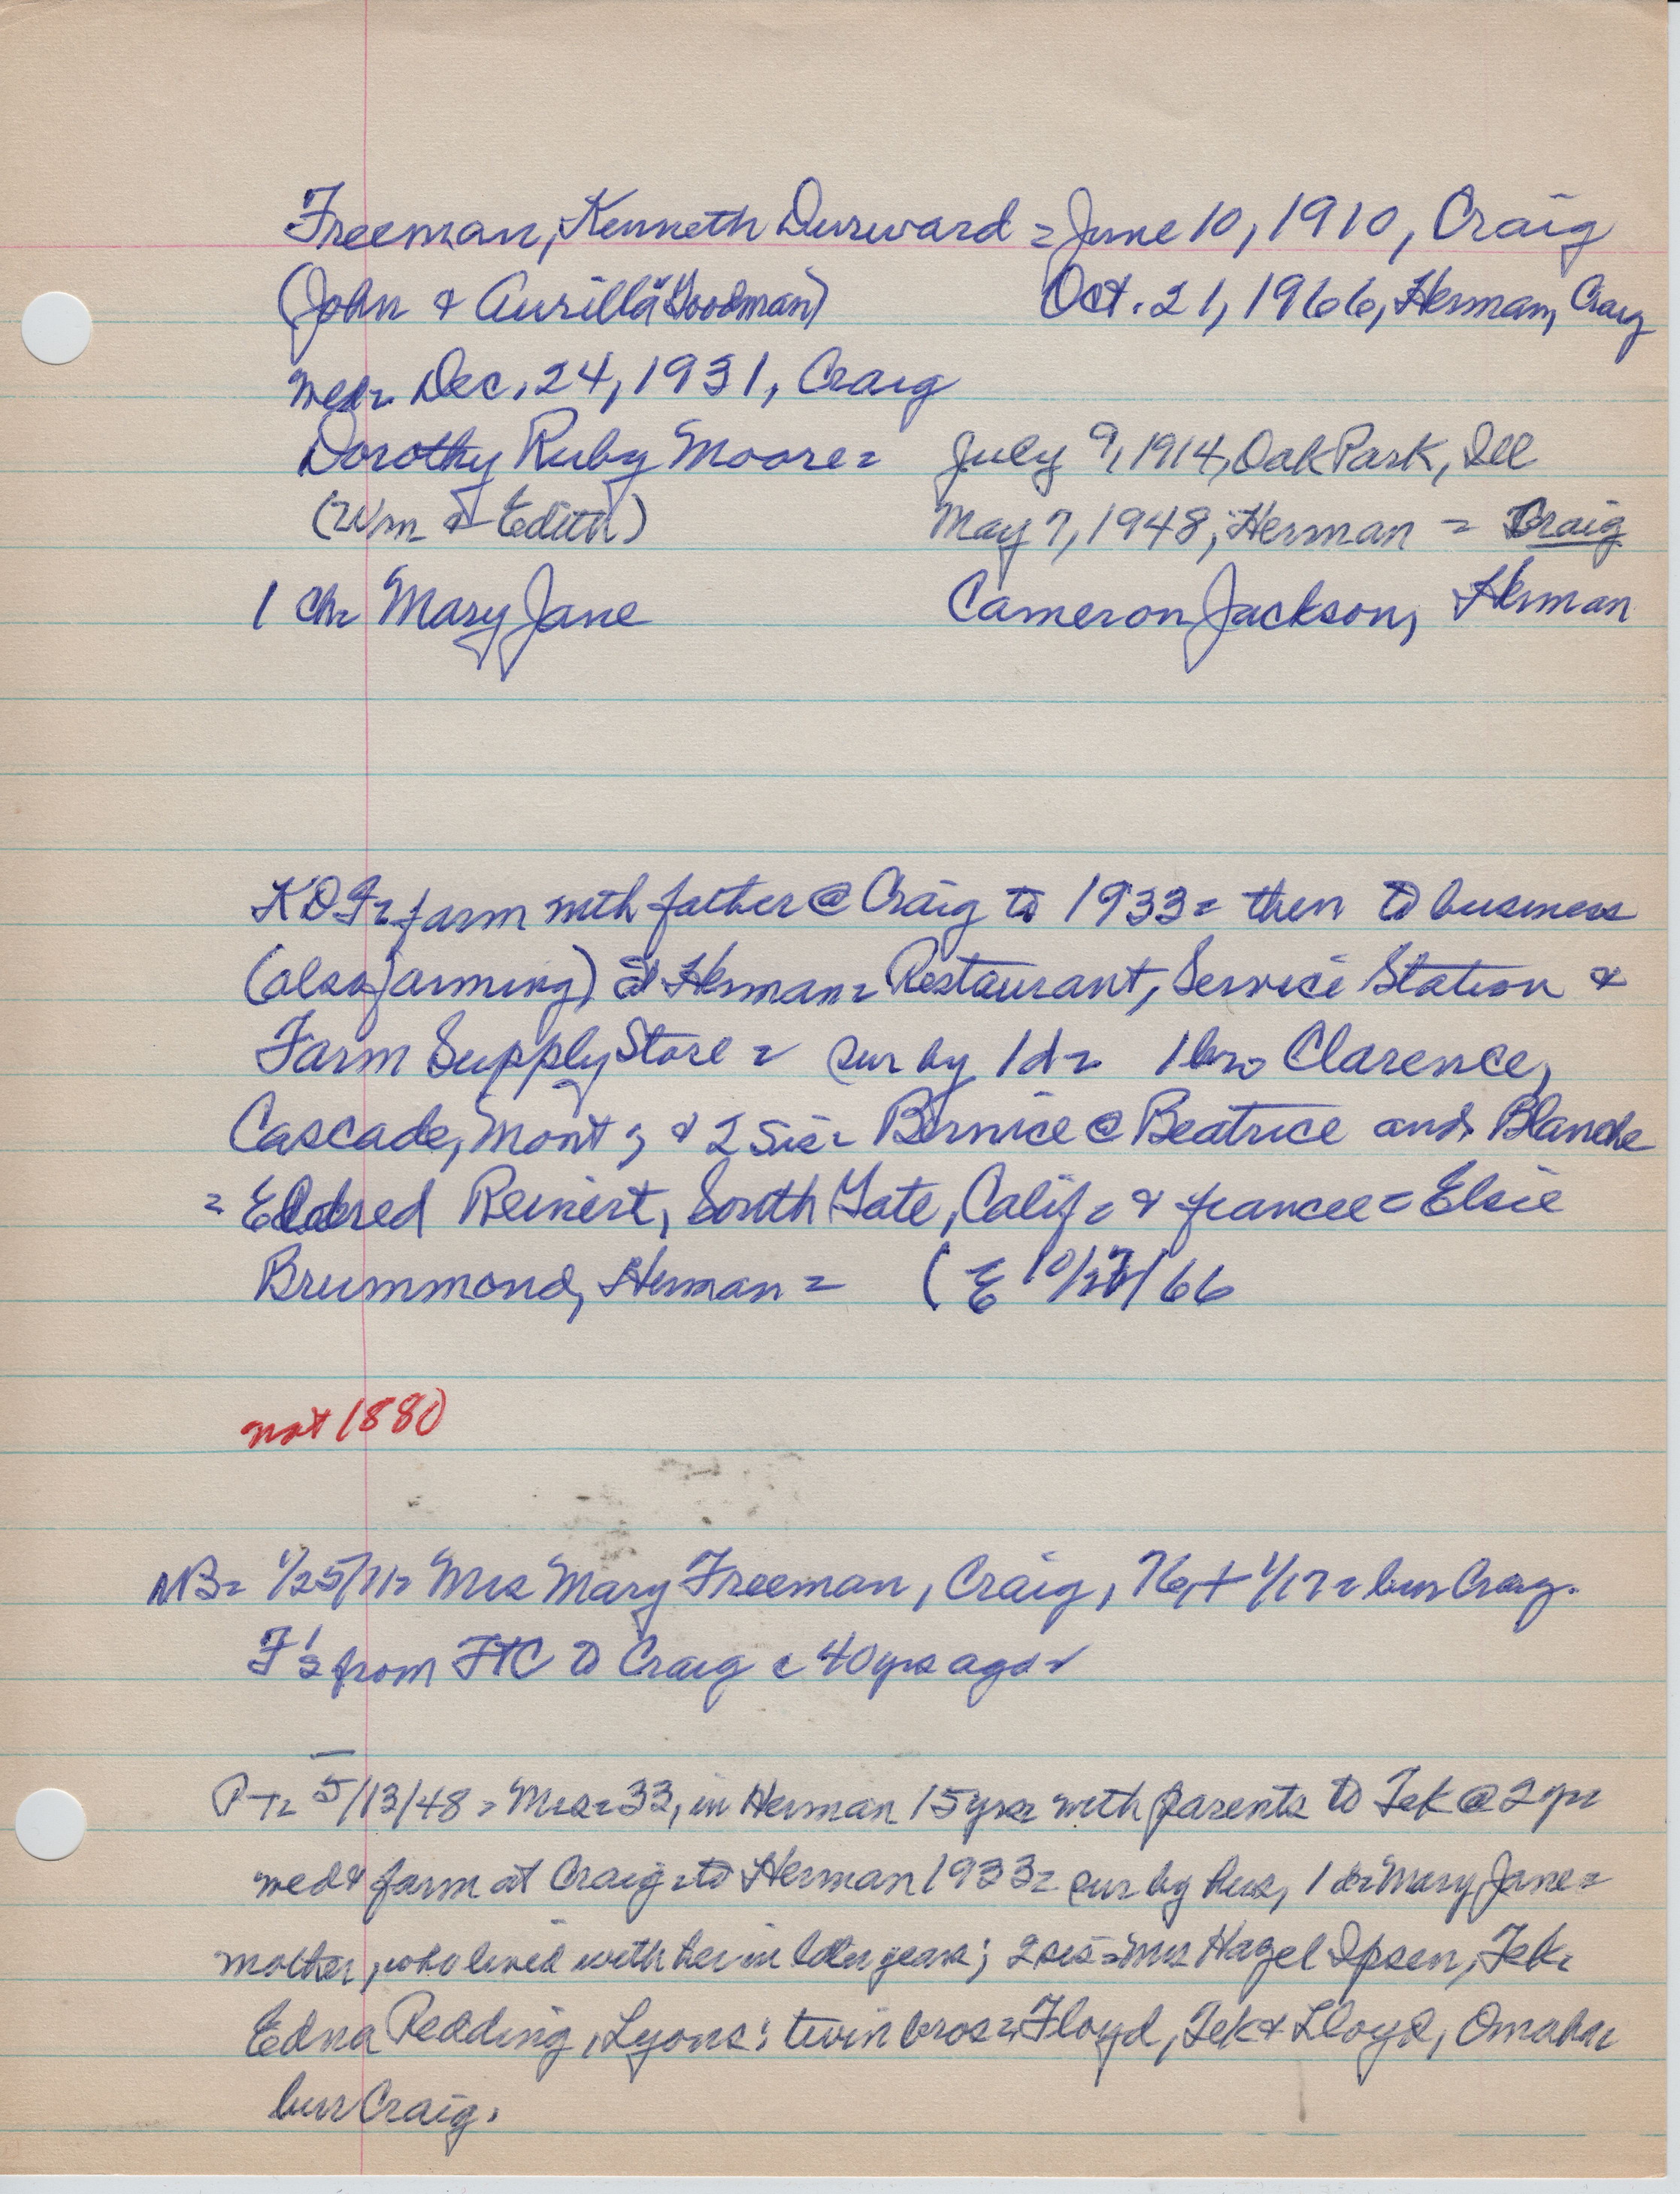 Freeman, Kenneth Durward = June 10, 1910, Craig
(John & Aurilla Goodman) Oct. 21, 1966, Herman, Craig
med = Dec. 24, 1931, Craig
Dorothy Ruby Moore = July 9, 1914, Oak Park, Ill
(Wm & Edith) May 7, 1948, Herman = Craig
1 ch = Mary Jane Cameron Jackson, Herman
KDF = farm with father @ Craig to 1933 = then to business
(also farming) at Herman = Restaurant, Service Station &
Farm Supply Store = sur by 1 d = 1 bro Clarence,
Cascade, Mont; & 2 sis = Bernice @ Beatrice and Blanche
= Eldred Reinert, South Gate, Calif = & fiancee = Elsie
Brummond, Herman = (E 10/27/66
not 1880
NB = 1/25/11 = Mrs Mary Freeman, Craig, 76, + 1/17 = bur Craig.
F's from FtC to Craig c 40 yrs ago =
PT = 5/13/48 = Mrs = 33, in Herman 15 yrs = with parents to Tek @ 2 yr =
med & farm at Craig = to Herman 1933 = sur by hus, 1 d = Mary Jane =
mother, who lived with her in later years; 2 sis = Mrs Hazel Ipsen, Tek =
Edna Redding, Lyons; twin bros = Floyd, Tek & Lloyd, Omaha =
bur Craig.